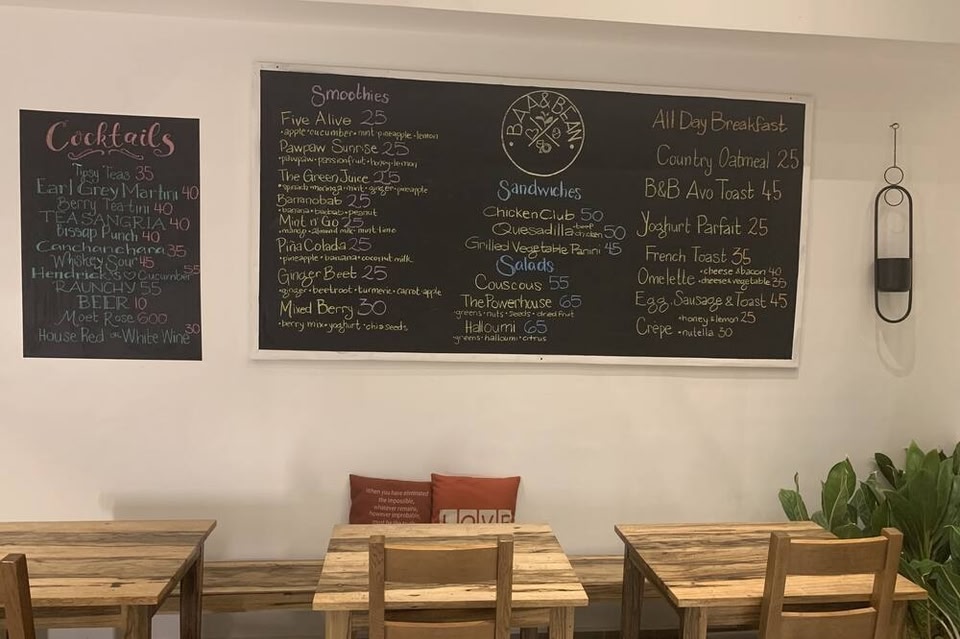 Cocktails
Tipsy Teas 35
Earl Grey Martini 40
Berry Tea-tini 40
TEA SANGRIA 40
Bissap Punch 40
Canchanchara 35
Whiskey Sour 45
Hendrick's ♡ Cucumber 55
RAUNCHY 55
BEER 10
Moet Rose 600
House Red or White Wine 30
Smoothies
Five Alive 25
•apple•cucumber•mint•pineapple•lemon
Pawpaw Sunrise 25
•pawpaw•passionfruit•honey•lemon
The Green Juice 25
•spinach•moringa•mint•ginger•pineapple
Bananobab 25
•banana•baobab•peanut
Mint n' Go 25
•mango•almond milk•mint•lime
Piña Colada 25
•pineapple•banana•coconut milk
Ginger Beet 25
•ginger•beetroot•turmeric•carrot•apple
Mixed Berry 30
•berry mix•yoghurt•chia seeds
BAA&BEAN
Sandwiches
Chicken Club 50
Quesadilla •beef •chicken 50
Grilled Vegetable Panini 45
Salads
Couscous 55
The Powerhouse 65
•greens•nuts•seeds•dried fruit
Halloumi 65
greens•halloumi•citrus
All Day Breakfast
Country Oatmeal 25
B&B Avo Toast 45
Yoghurt Parfait 25
French Toast 35
Omelette •cheese & bacon 40
•cheese & vegetable 35
Egg, Sausage & Toast 45
Crepe •honey & lemon 25
•nutella 30
when you have eliminated
the impossible,
whatever remains,
however improbable,
must be the truth
LOVE